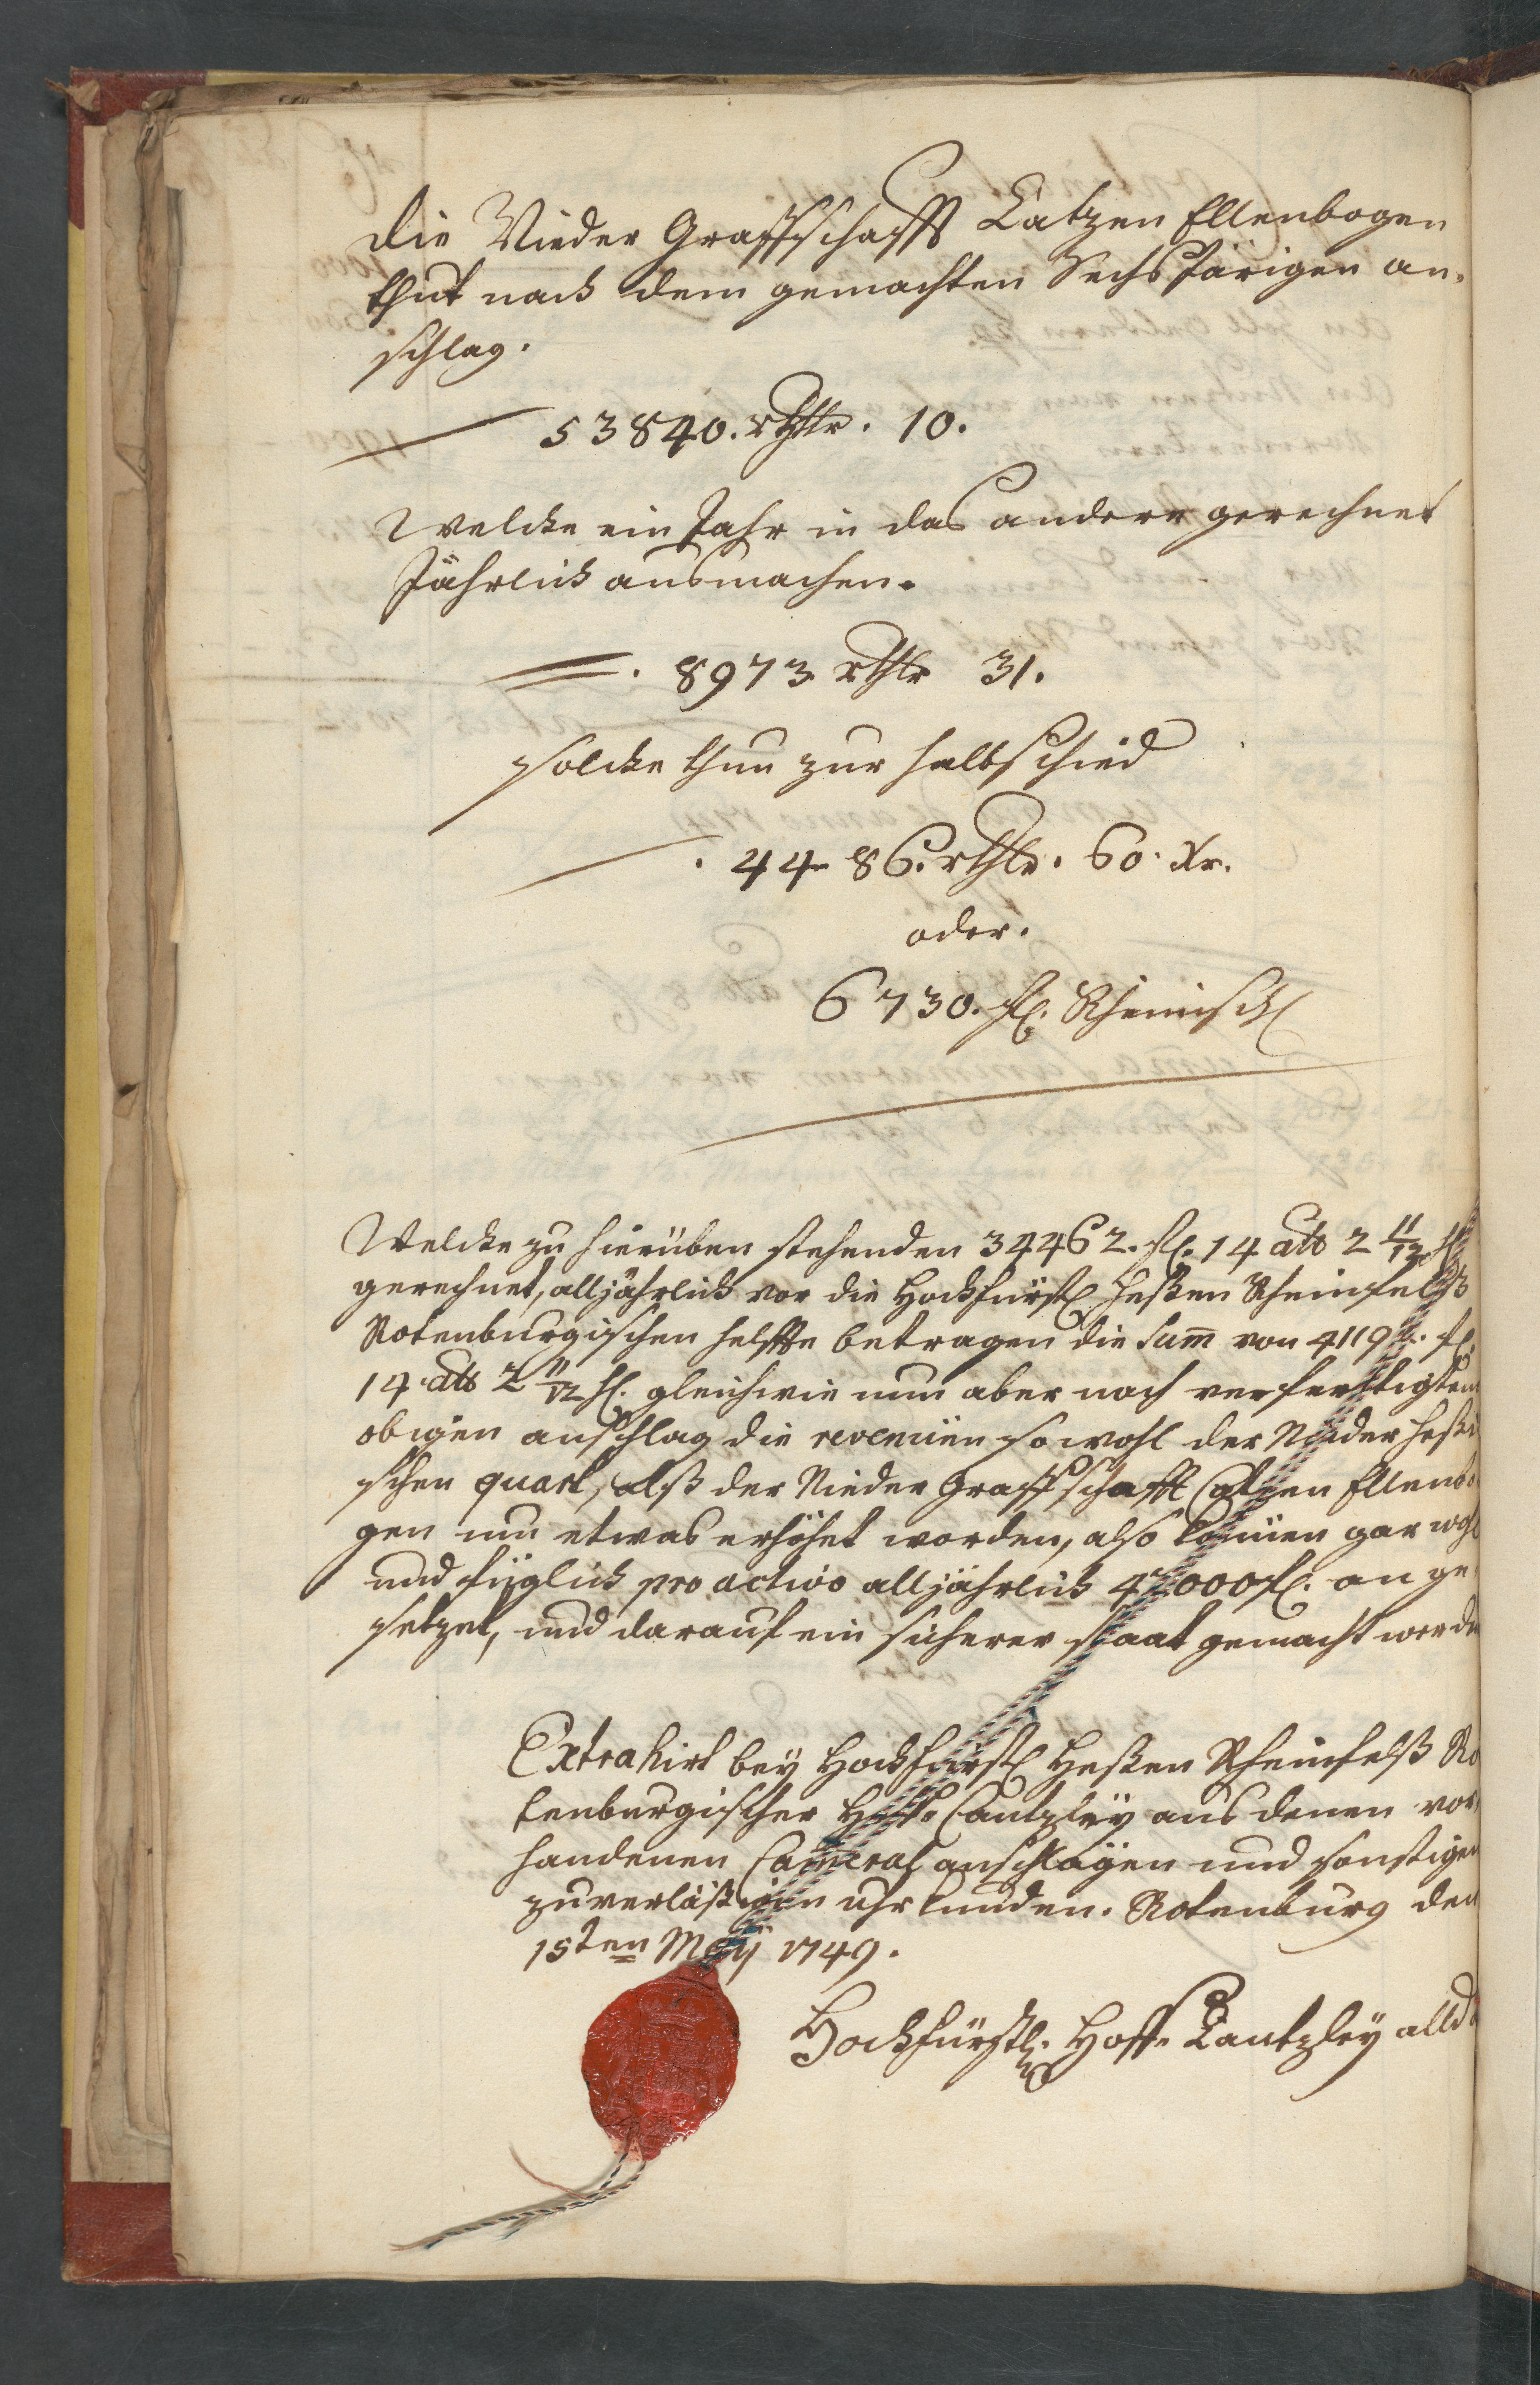 Die Nieder Graffschafft Catzen Ellenbogen
thut nach dem gemachten Sechs Järigen an-
schlag.
53840. rthlr. 10.
Welche ein Jahr in das andere gerechnet
Jährlich ausmachen.
8973 rthlr 31.
solche thun zur halbschied
4486. rthlr. 60. Xr.
oder.
6730. fl. Rheinisch
Welche zu hierüben stehenden 34462. fl. 14 alb 2 11/12 hl
gerechnet, alljährlich vor die Hochfürstl Heßen Rheinfelß
Rotenburgischen helffte betragen die Sum von 41192. fl.
14 alb 2 11/12 hl. gleichwie nun aber nach verfertigtem
obigen anschlag die revenüen sowohl der Nieder Heßi
schen quart, alß der Nieder Graffschafft Catzen Ellenbo
gen um etwas erhöhet worden, also können gar wohl
und füglich pro activo alljährlich 42000 fl. an ge-
setzet, und darauf ein sicherer staat gemacht werden
Extrahirt bey Hochfürstl Heßen Rheinfelß Ro
tenburgischer Hoff Cantzley aus denen vor-
handenen Cameral anschlägen und sonstigen
zuverläßigen uhrkunden. Rotenburg den
15ten May 1749.
Hochfürstl. Hoff Cantzley allda